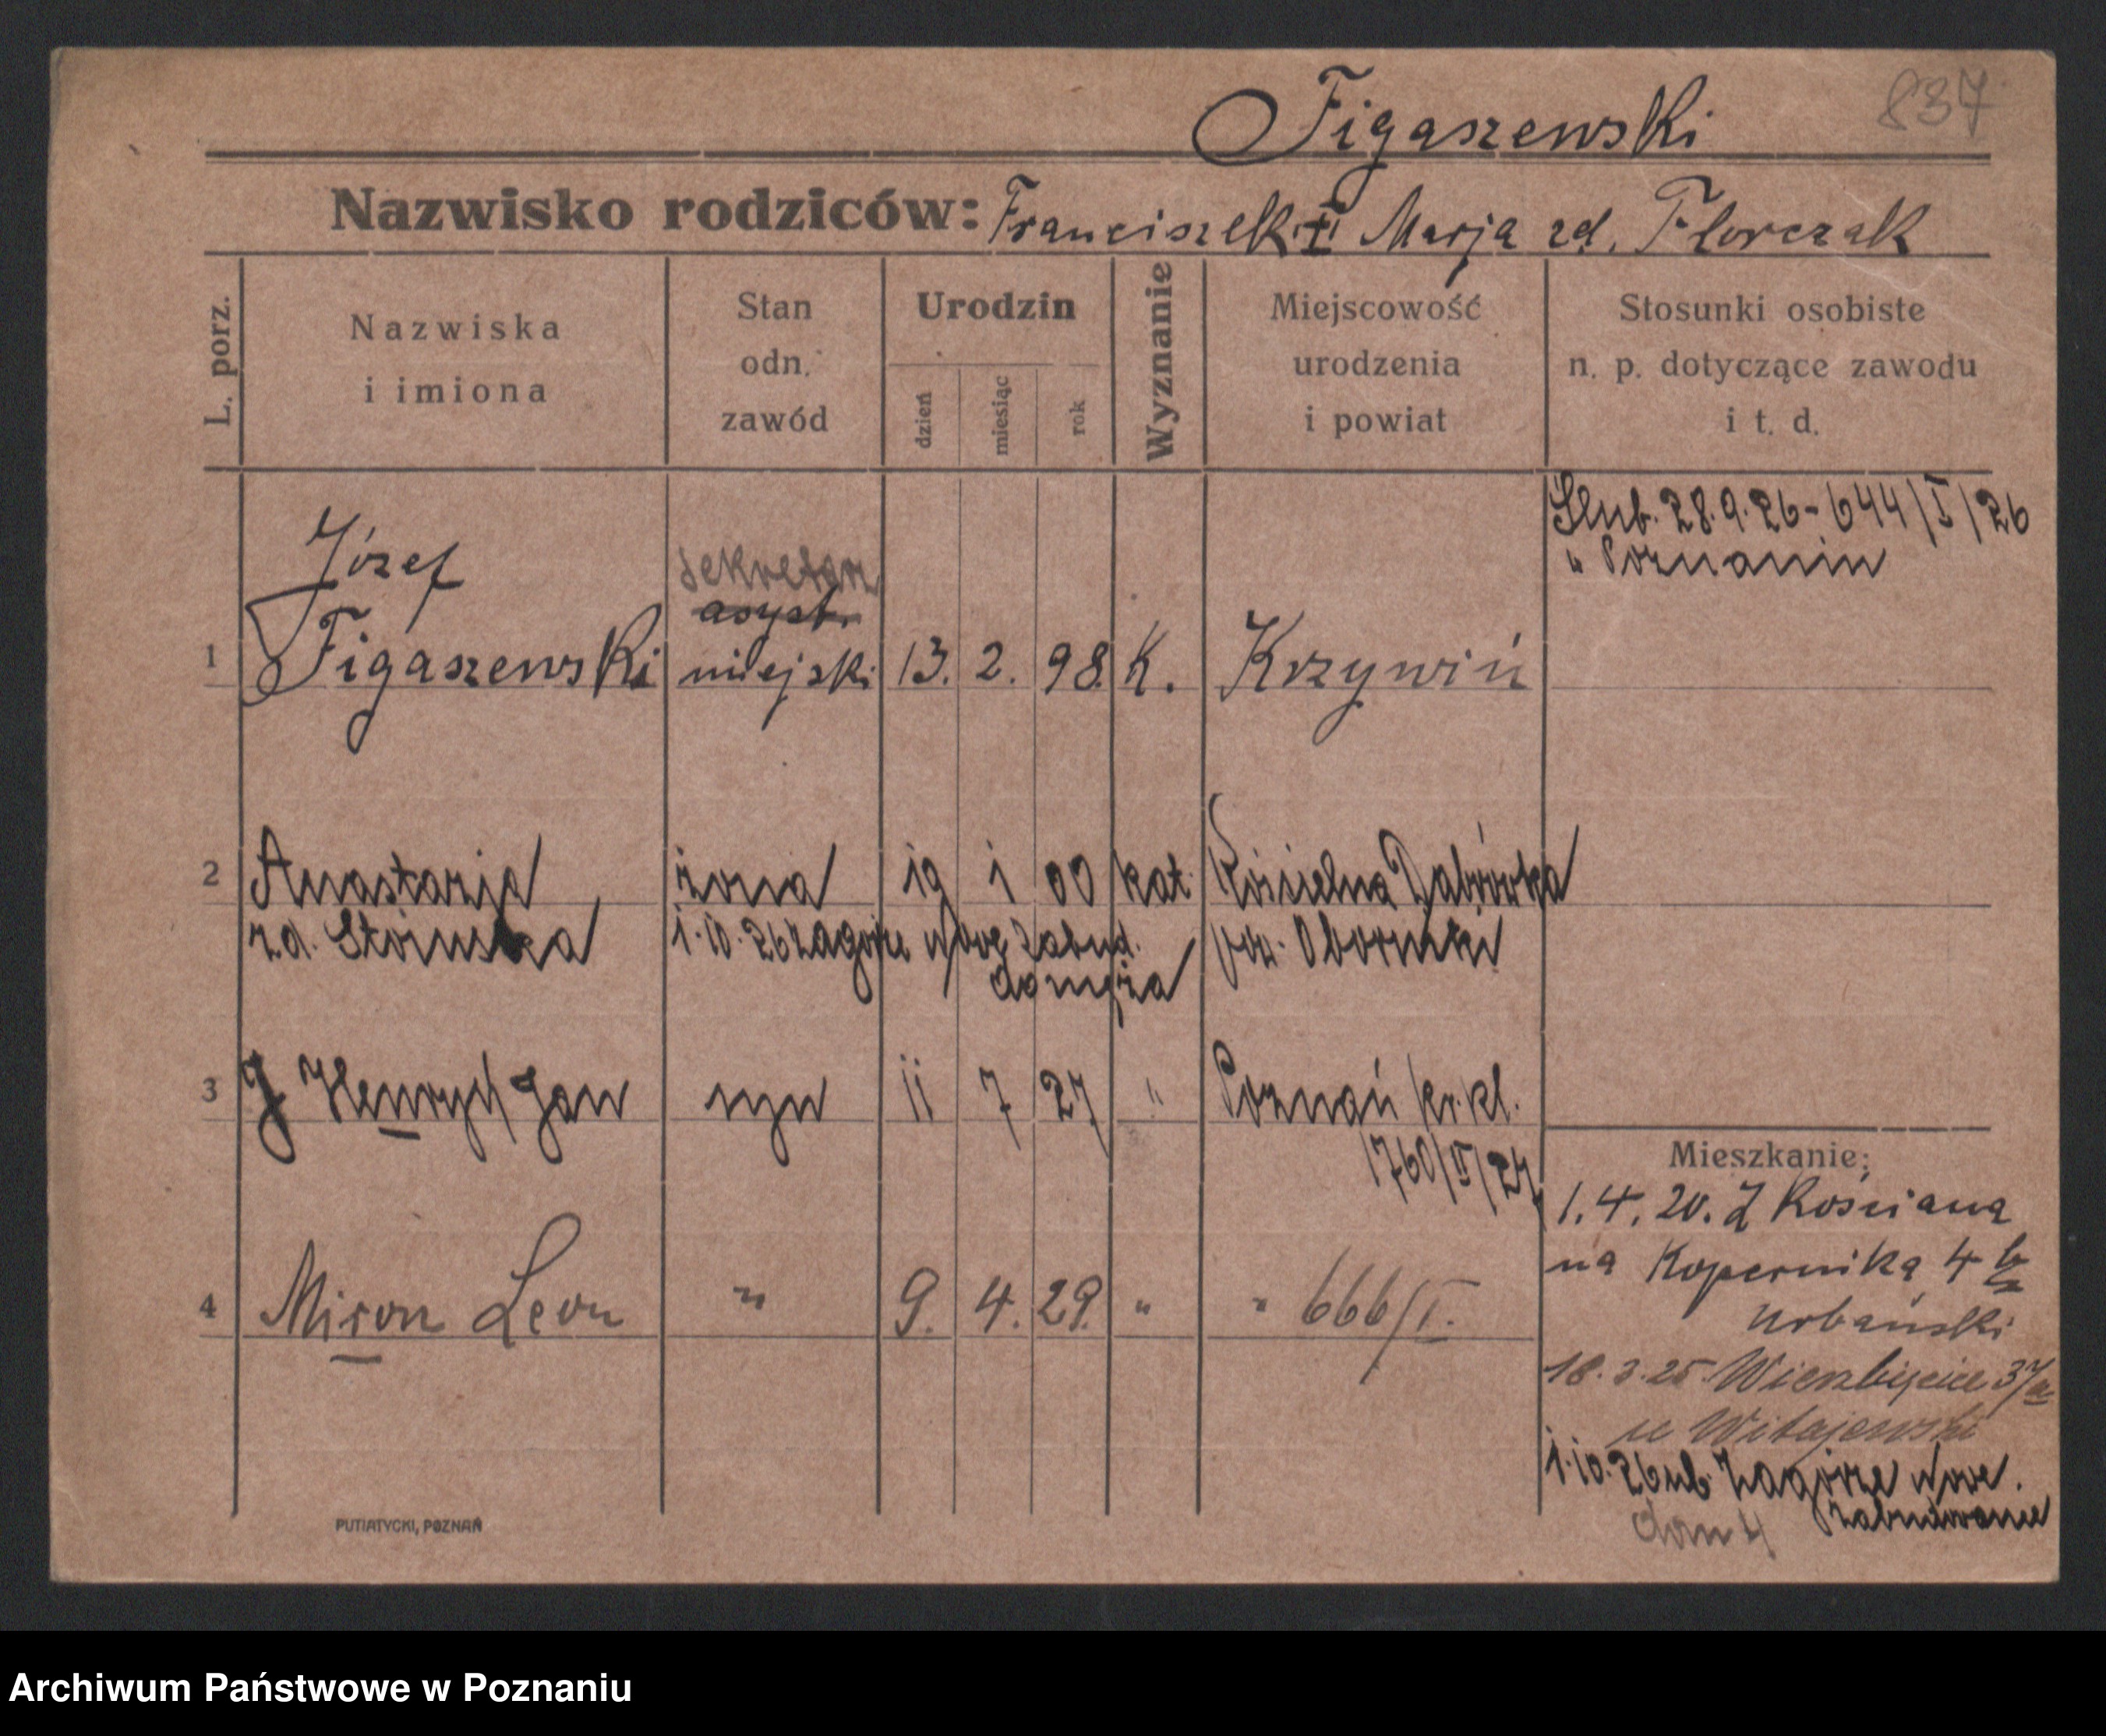 Figaszewski 837
Nazwisko rodziców: Franciszek i Marja zd. Florczak
L. porz.
Nazwiska
i imiona
Stan
odn.
zawód
Urodzin
dzień
miesiąc
rok
Wyznanie
Miejscowość
urodzenia
i powiat
Stosunki osobiste
n. p. dotyczące zawodu
i t. d.
Ślub. 28.9.26 - 644/I/26
w Poznaniu
Józef sekretarz
asyst.
1 Figaszewski miejski 13. 2. 98. k. Krzywiń
2 Anastazja żona 19 1 00 kat. Kościelna Dąbrówka
z.d. 1.10.26 Zagórze Nowe Zabud. pow. Oborniki
do męża
3 J Henryk Jan syn 11 7 27 " Poznań kr. kl.
1760/II/27
4 Miron Leon " 9. 4. 29. " " 666/I.
Mieszkanie:
1.4.20. Z Kościana
na Kopernika 4
Urbański
18.3.25 Wierzbięcice 37
u Witajewski
1.10.26 ub. Zagórze Nowe.
Zabudowanie
dom 4
PUTIATYCKI, POZNAŃ
Archiwum Państwowe w Poznaniu